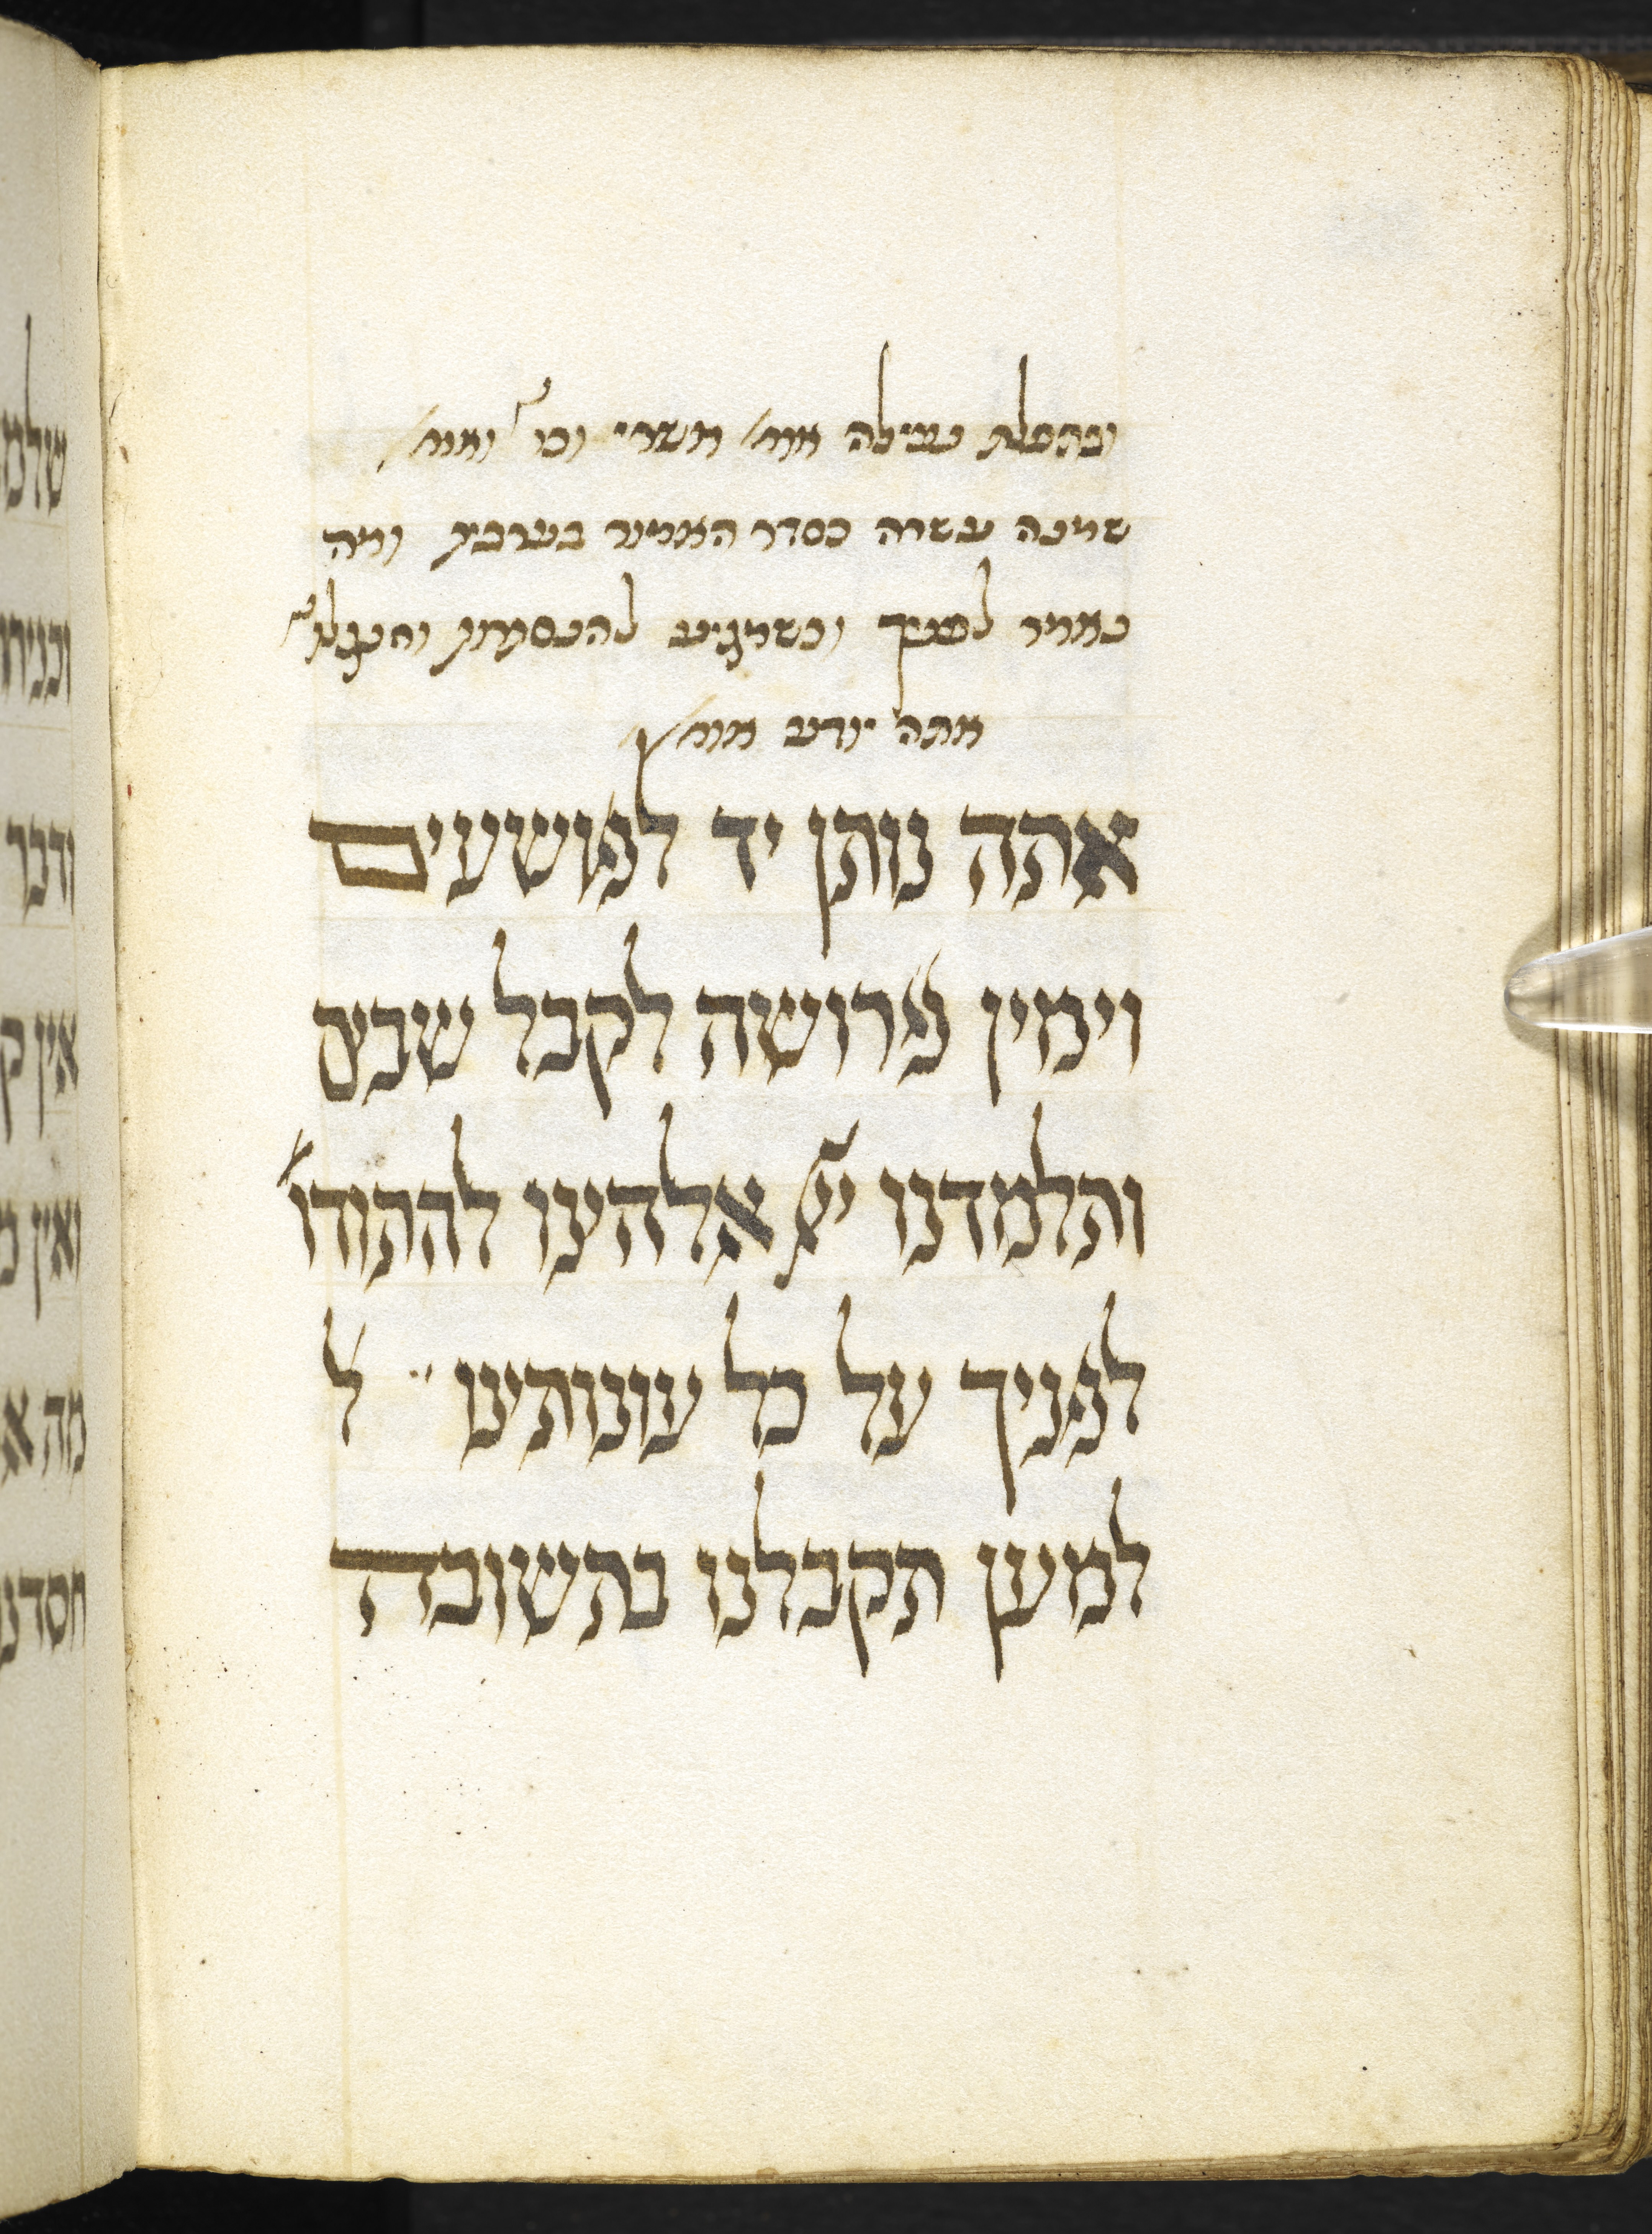 ובתפלת נעילה אומ׳ אשרי וכו׳ ואומ׳
שמנה עשרה כסדר האמור בערבית ומה
נאמר לפניך וכשמגיע להנסתרות והנגלת׳
אתה יודע אומ׳
אתה נותן יד לפושעים
וימין פרושה לקבל שבים
ותלמדנו יי׳ אלהינו להתודו׳
לפניך על כל עונותינו ל׳
למען תקבלנו בתשובה
ודבר
אין
ואין
מה